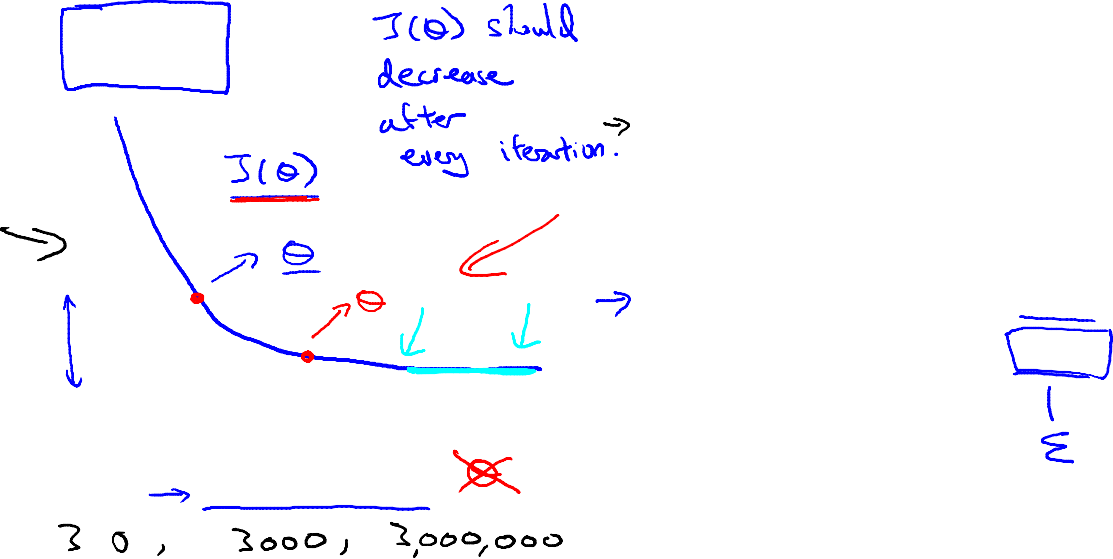 J(θ) should
decrease
after
every iteration.
J(θ)
θ
θ
θ
ε
30, 3000, 3,000,000